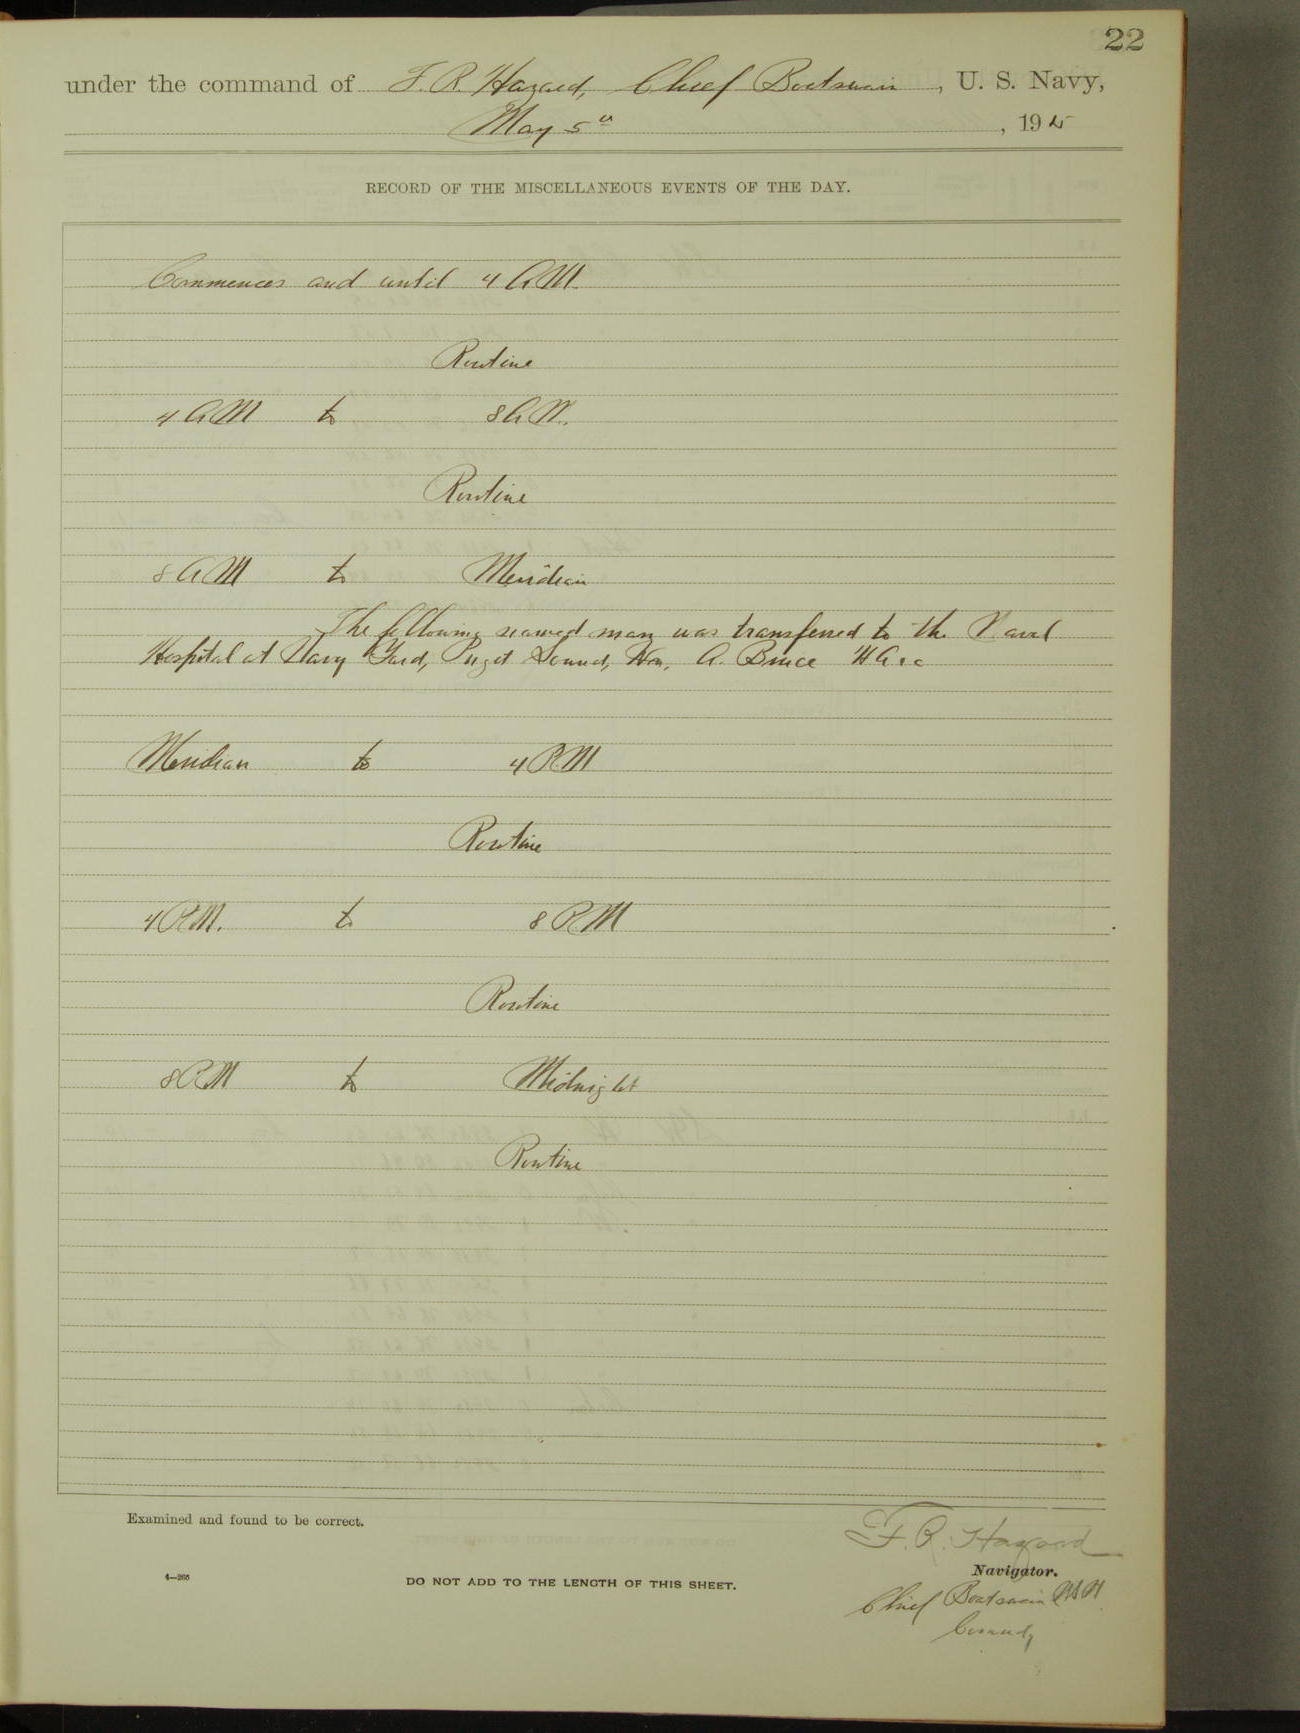 22
under the command of F. R. Hazard, Chief Boatswain, U. S. Navy,
May 5th, 19
RECORD OF THE MISCELLANEOUS EVENTS OF THE DAY.
Commences and until 4 A.M.
Routine
4 A.M to 8 A.M.
Routine
8 A.M to Meridian
The following named man was transferred to the Naval
Hospital at Navy Yard, Puget Sound, Wn, A. Bruce
Meridian to 4 P.M
Routine
4 P.M. to 8 P.M
Routine
8 P.M to Midnight
Routine
Examined and found to be correct.
F. R. Hazard
Navigator.
4—265
DO NOT ADD TO THE LENGTH OF THIS SHEET.
Chief Boatswain U.S.N